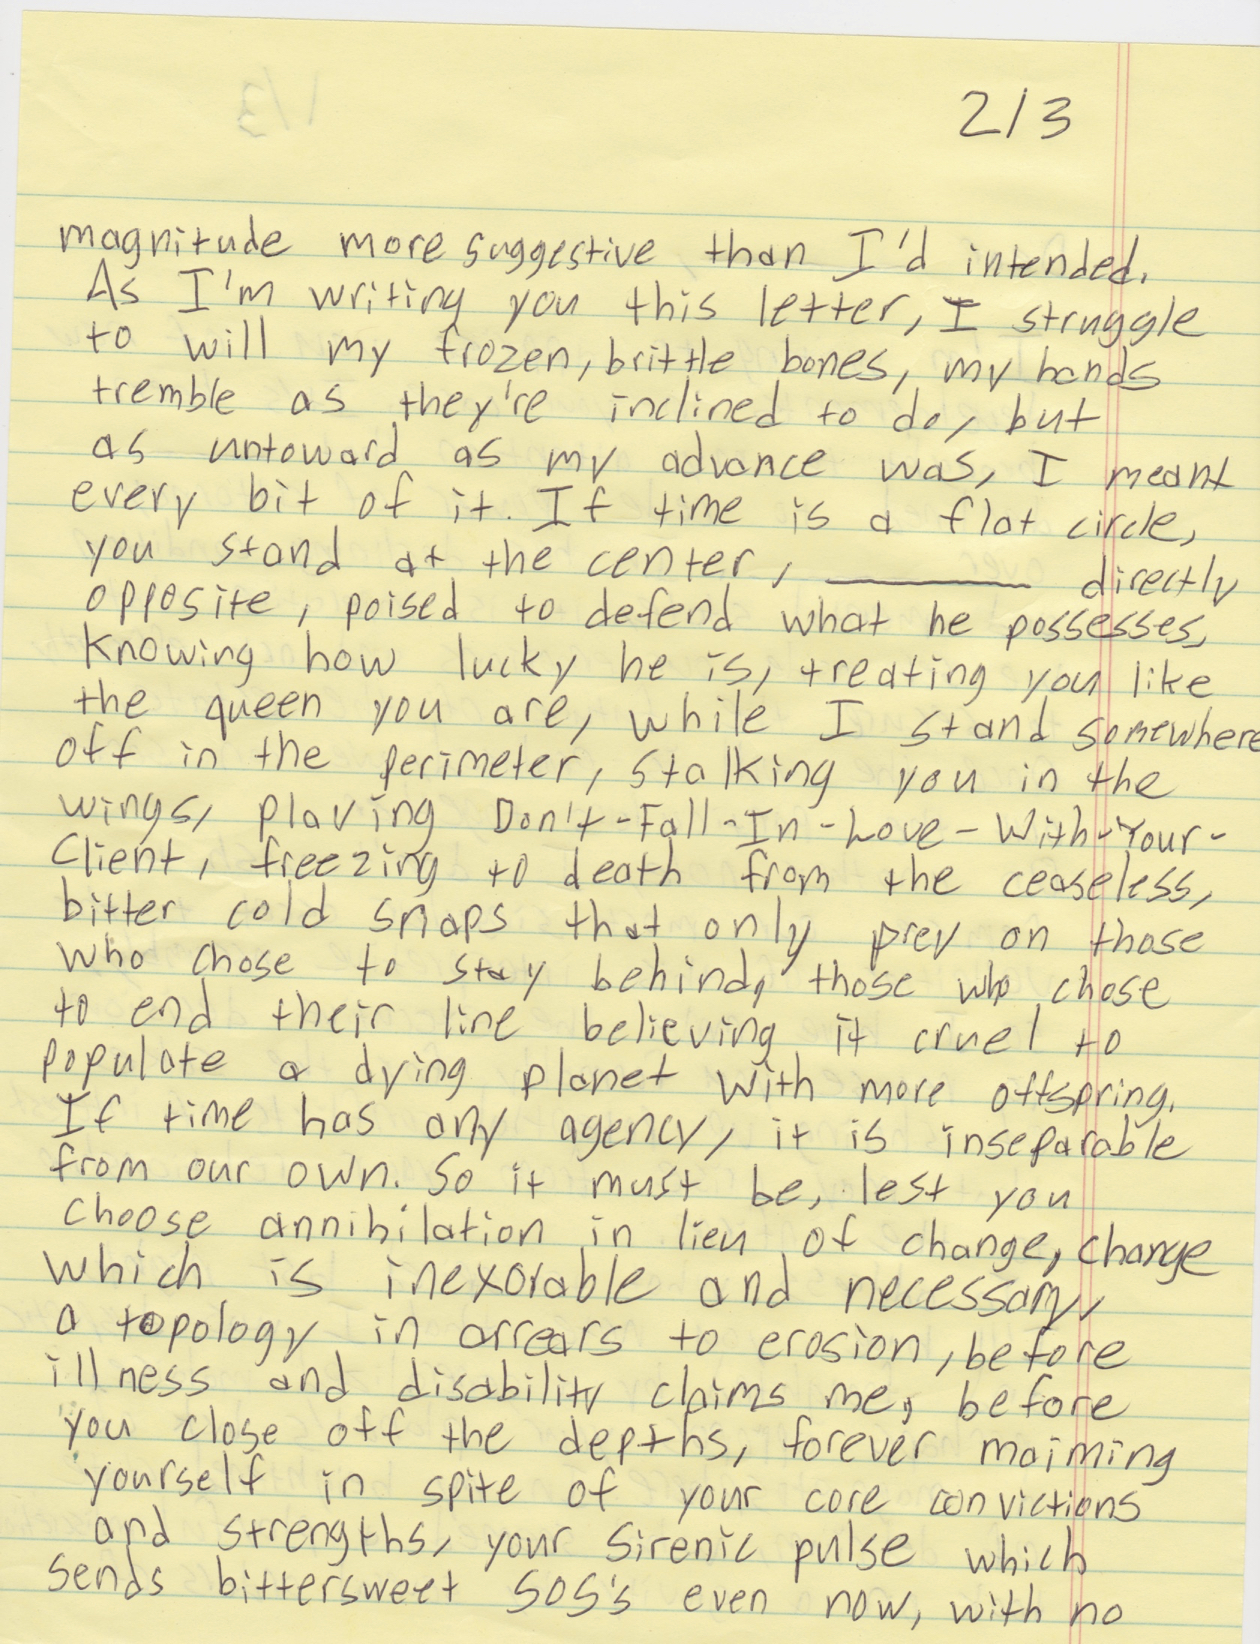 2/3
magnitude more suggestive than I'd intended.
As I'm writing you this letter, I struggle
to will my frozen, brittle bones, my hands
tremble as they're inclined to do, but
as untoward as my advance was, I meant
every bit of it. If time is a flat circle,
you stand at the center, __________ directly
opposite, poised to defend what he possesses,
knowing how lucky he is, treating you like
the queen you are, while I stand somewhere
off in the perimeter, stalking you in the
wings, playing Don't-Fall-In-Love-With-Your-
Client, freezing to death from the ceaseless,
bitter cold snaps that only prey on those
who chose to stay behind, those who chose
to end their line believing it cruel to
populate a dying planet with more offspring.
If time has any agency, it is inseparable
from our own. So it must be, lest you
choose annihilation in lieu of change, change
which is inexorable and necessary,
a topology in arrears to erosion, before
illness and disability claims me, before
you close off the depths, forever maiming
yourself in spite of your core convictions
and strengths, your sirenic pulse which
sends bittersweet SOS's even now, with no